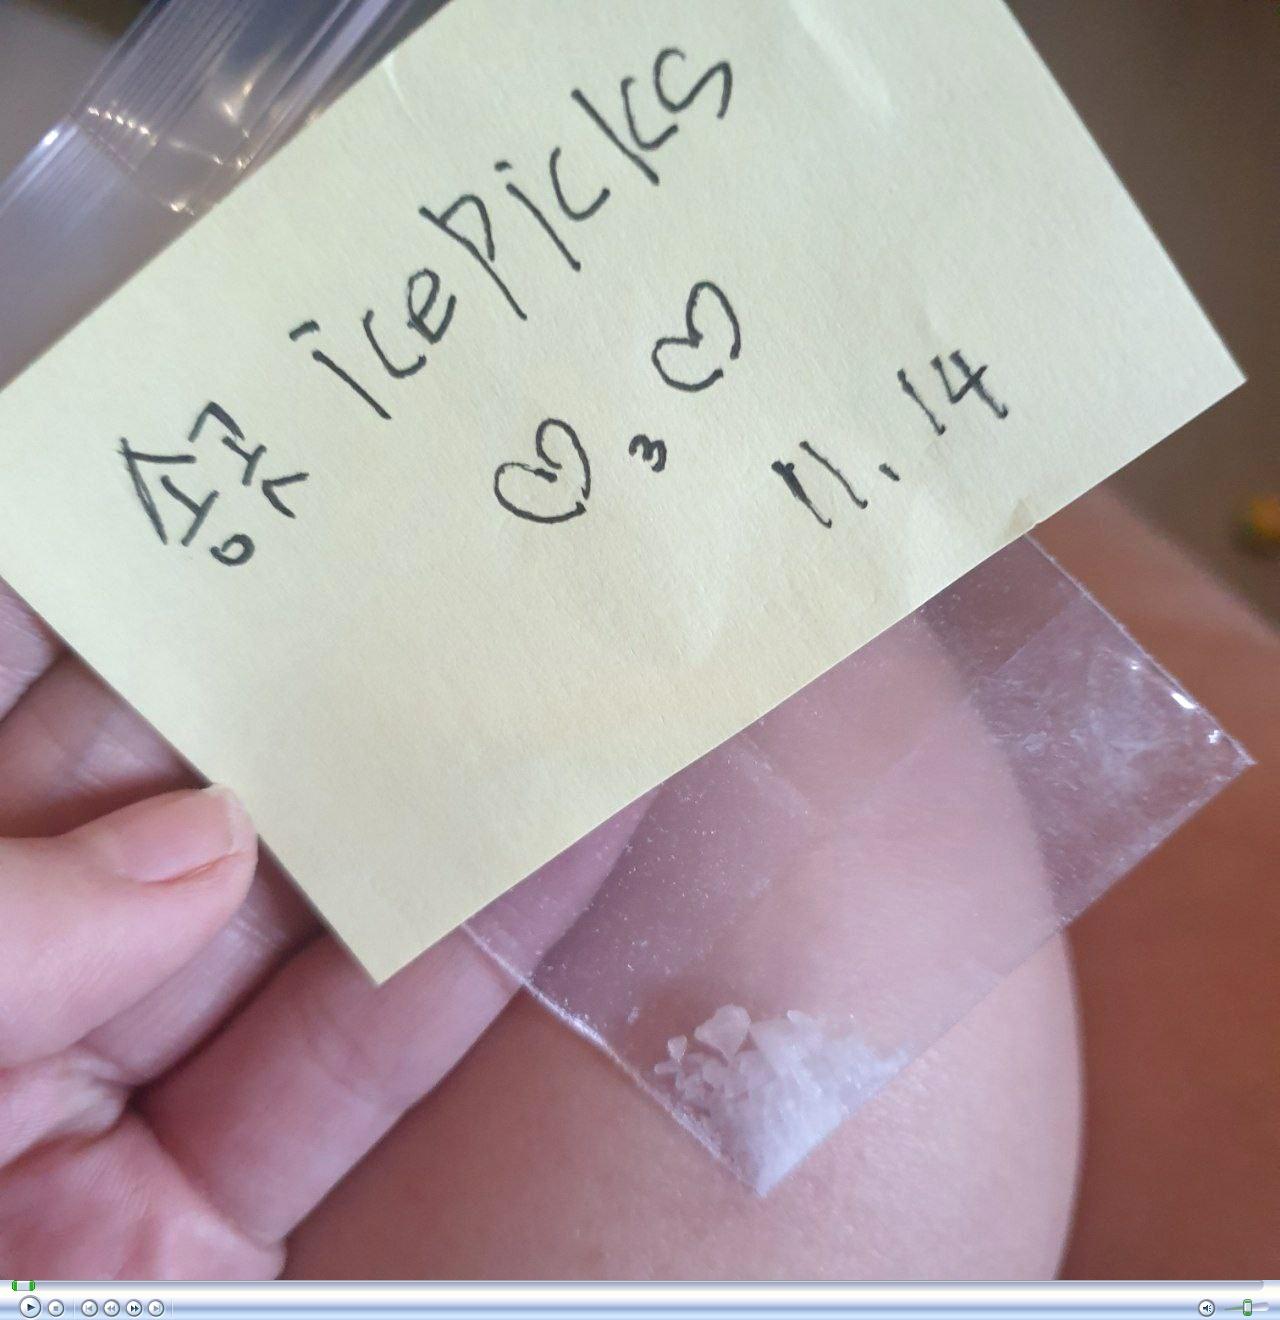 송곳 icepicks
♡3♡
11.14